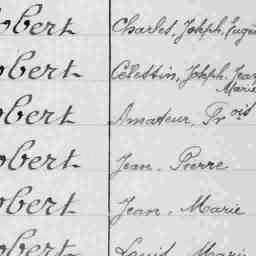 obert Charles, Joseph, Eugè
obert Célestin, Joseph, Jean
Marie
obert Amateur, Frois
obert Jean-Pierre
obert Jean-Marie
obert Louis, Marie